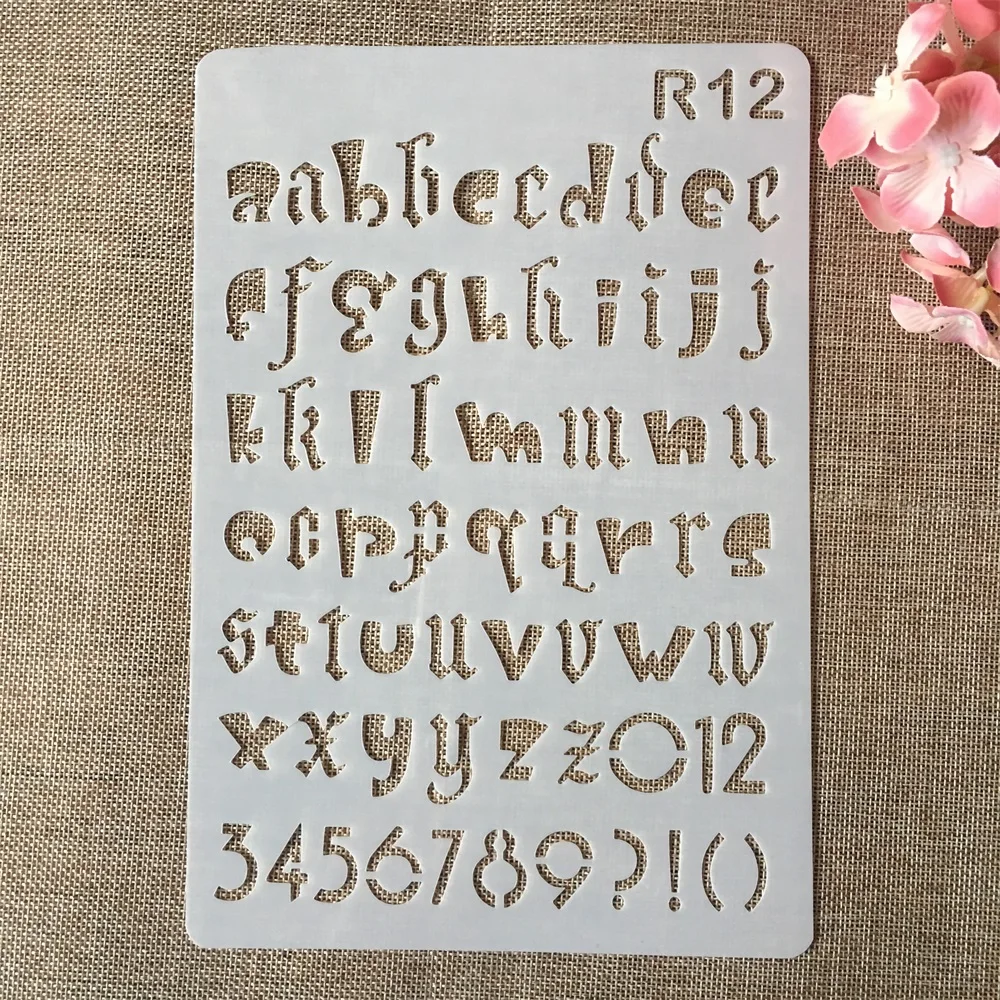 R12
aabbccddee
ffgghhiijj
kkllmmnn
ooppqqrrs
sttuuvvww
xxyyzz012
3456789?!()